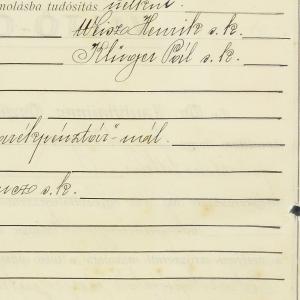 molásba tudósítás nélkül.
Weisz Henrik s. k.
Klinger Pál s. k.
arékpénztár"-nál.
ncz s. k.